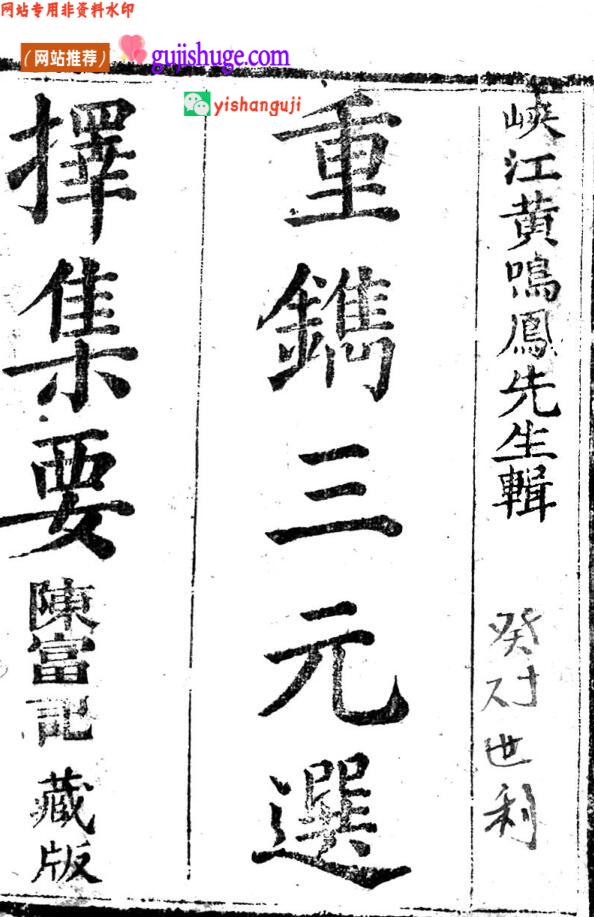 网站专用非资料水印
（网站推荐） gujishuge.com
yishanguji
峽江黄鳴鳳先生輯
重鐫三元選
擇集要
陳富記
藏版